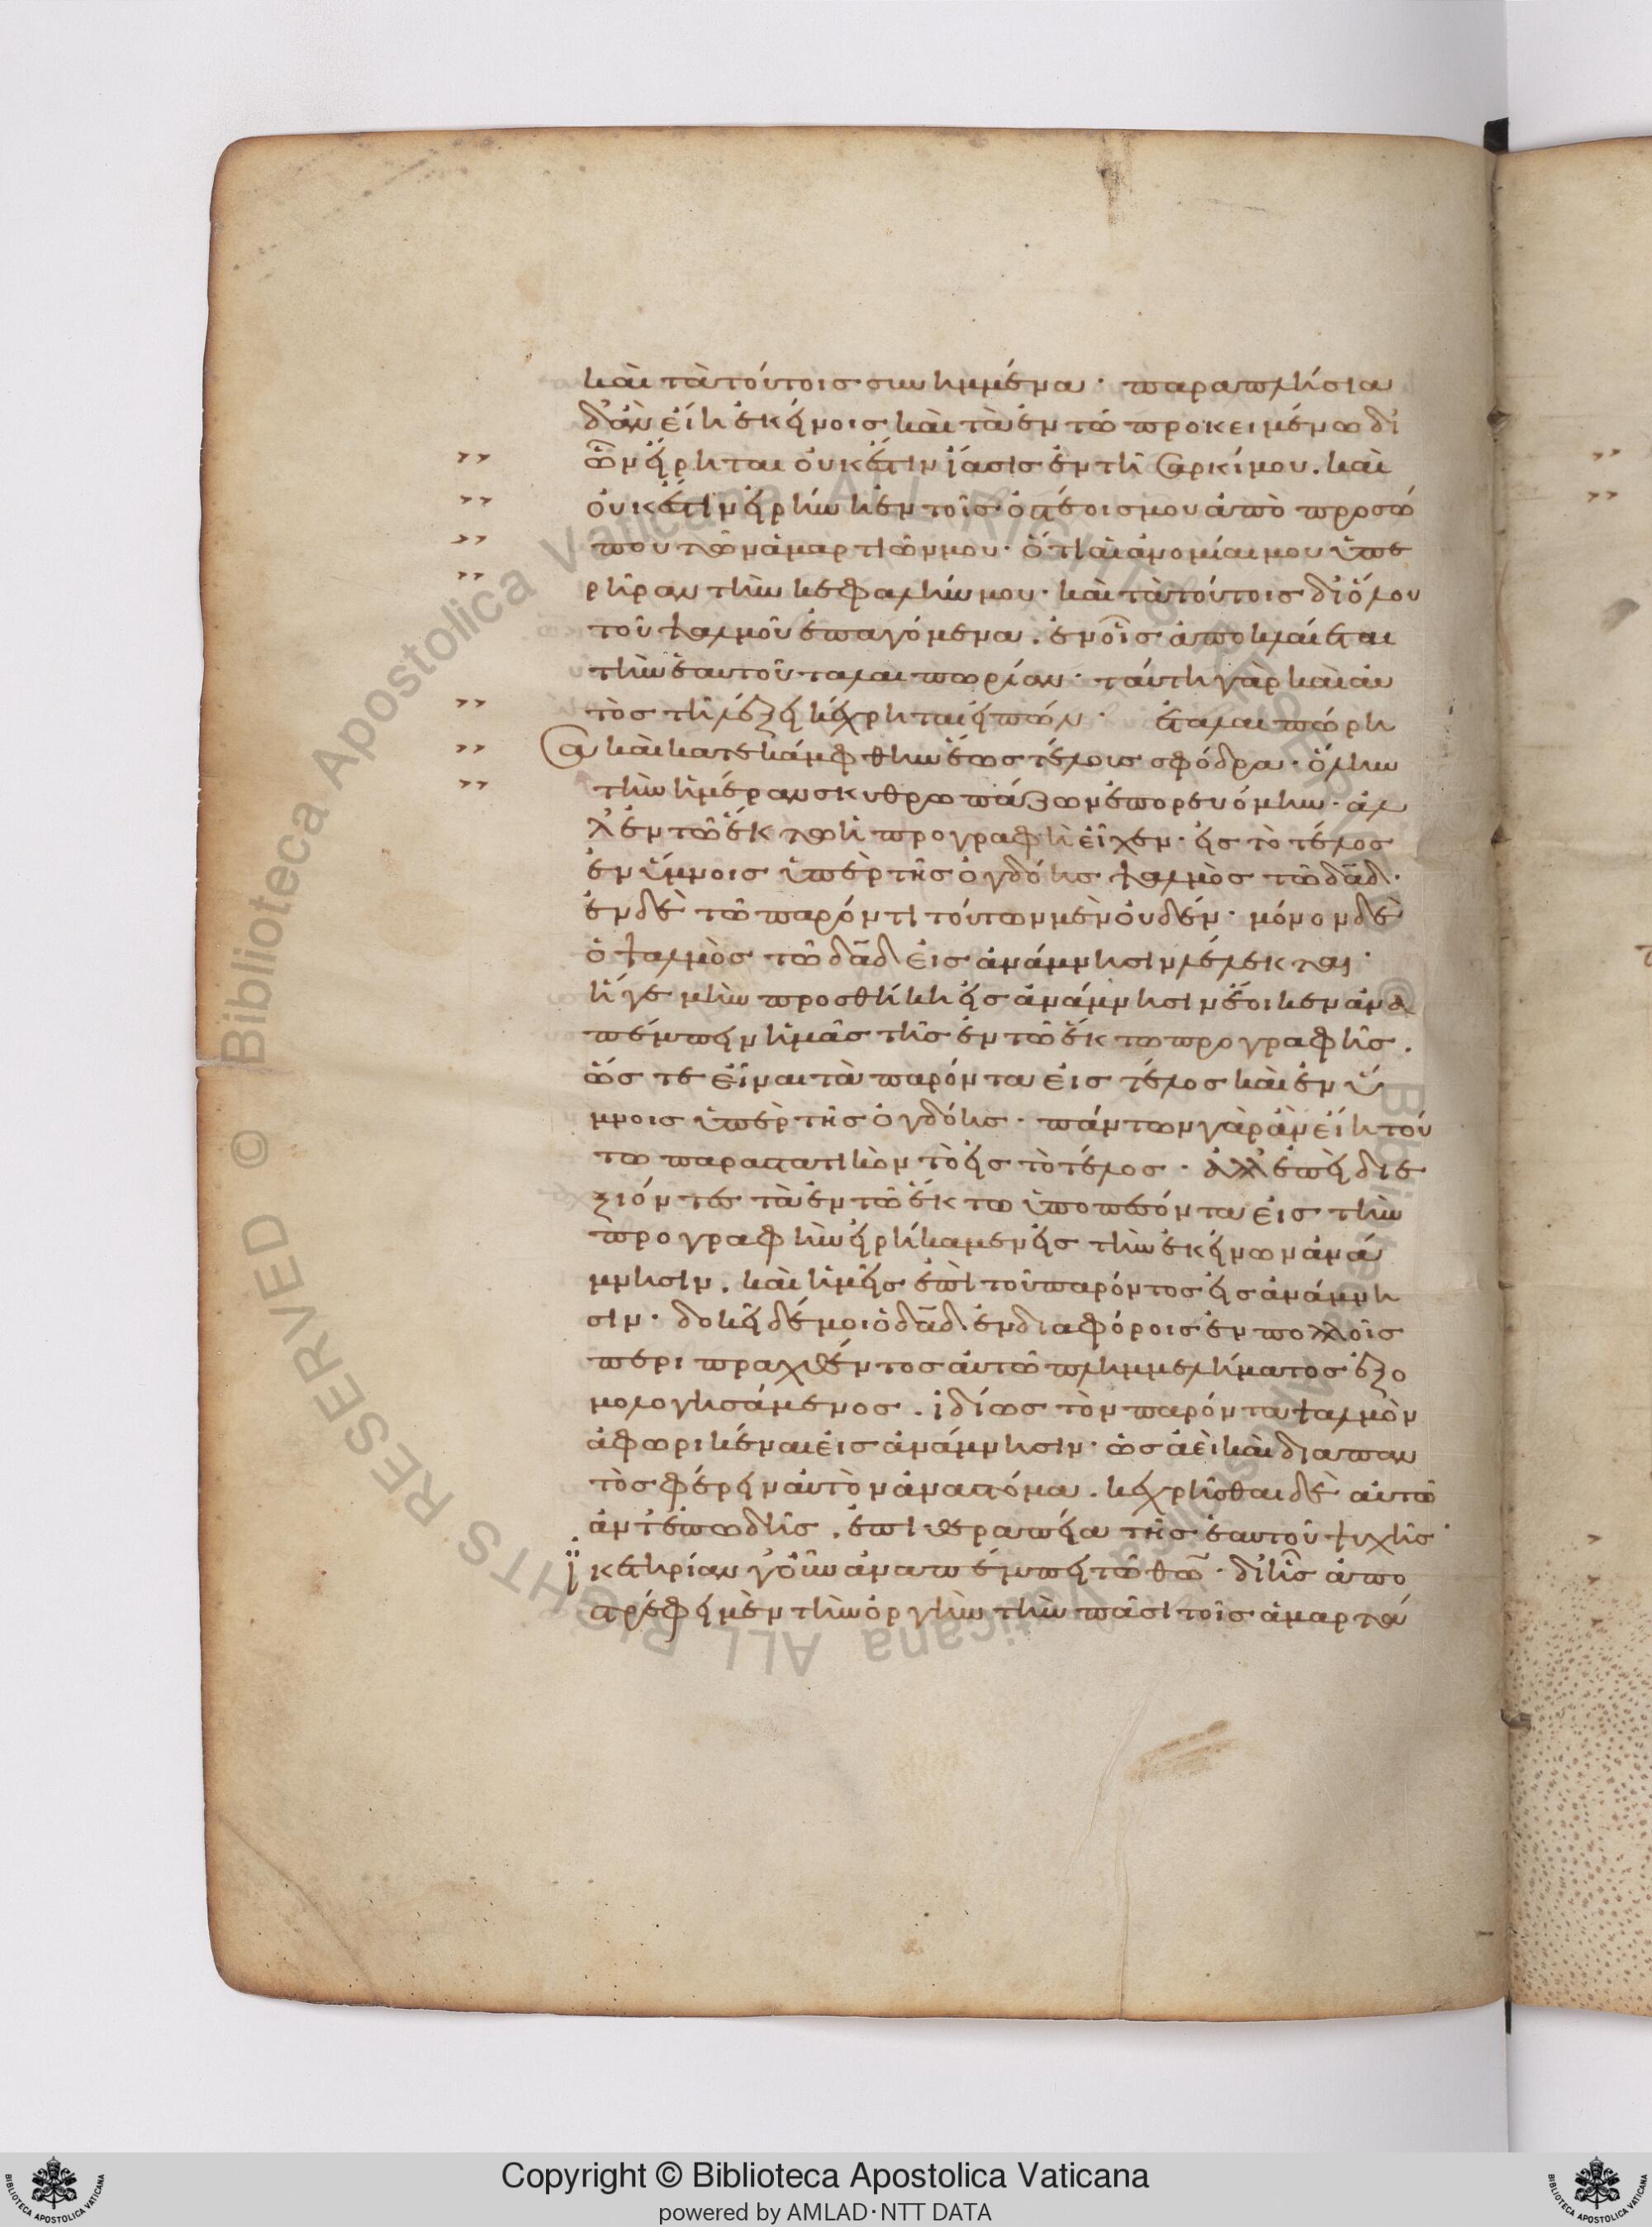 καὶ τὰ τούτοις συνημμένα· παραπλήσια
δ' ἂν εἴη ἐκείνοις καὶ τὰ ἐν τῶ προκειμένω δι
ὧν εἴρηται οὐκ ἔστιν ἴασις ἐν τῆ σαρκί μου. καὶ
οὐκ ἔστιν εἰρήνη ἐν τοῖς ὀστέοις μου ἀπὸ προσώ
που τῶν ἁμαρτιῶν μου· ὅτι αἱ ἀνομίαι μου ὑπε
ρῆραν τὴν κεφαλήν μου· καὶ τὰ τούτοις δι' ὅλου
τοῦ ψαλμοῦ ἐπαγόμενα. ἐν οἷς ἀποκλαίεται
τὴν ἑαυτοῦ ταλαιπωρίαν· ταύτη γὰρ καὶ αὐ
τὸς τῆ λέξει κέχρηται εἰπών· ἐταλαιπώρη
σα καὶ κατεκάμφθην ἕως τέλους σφόδρα· ὅλην
τὴν ἡμέραν σκυθρωπάζων ἐπορευόμην· ἀλ
λ' ἐν τῶ ἕκτω ἡ προγραφὴ εἶχεν· εἰς τὸ τέλος
ἐν ὕμνοις ὑπὲρ τῆς ὀγδόης ψαλμὸς τῶ δαδ·
ἐν δὲ τῶ παρόντι τούτων μὲν οὐδέν· μόνον δὲ
ὁ ψαλμὸς τῶ δαδ εἰς ἀνάμνησιν λέλεκται·
ἥ γε μὴν προσθήκη εἰς ἀνάμνησιν ἔοικεν ἀνα
πέμπειν ἡμᾶς τῆς ἐν τῶ ἕκτω προγραφῆς.
ὥς τε εἶναι τὰ παρόντα εἰς τέλος καὶ ἐν ὕ
μνοις ὑπὲρ τῆς ὀγδόης· πάντων γὰρ ἂν εἴη τού
τω παραστατικὸν τὸ εἰς τὸ τέλος· ἀλλ' ἐπεὶ διε
ξιόντες τὰ ἐν τῶ ἕκτω ὑποπεσόντα εἰς τὴν
προγραφὴν εἰρήκαμεν εἰς τὴν ἐκείνων ἀνά
μνησιν. καὶ ἡμεῖς ἐπὶ τοῦ παρόντος εἰς ἀνάμνη
σιν· δοκεῖ δέ μοι ὁ δαδ ἐν διαφόροις ἐν πολλοῖς
περι πραχθέντος αὐτῶ πλημμελήματος ἐξο
μολογησάμενος. ἰδίως τὸν παρόντα ψαλμὸν
ἀφωρικέναι εἰς ἀνάμνησιν· ὡς ἀεὶ καὶ διαπαν
τὸς φέρειν αὐτὸν ἀναστόμα. κεχρῆσθαι δὲ αὐτῶ
ἀντ' ἐπωδῆς. ἐπι θεραπεία τῆς ἑαυτοῦ ψυχῆς·
ἱκετηρίαν γοῦν ἀναπέμπει τῶ θω· δι' ἧς ἀπο
στρέφει μὲν τὴν ὀργὴν τὴν πᾶσι τοῖς ἁμαρτά